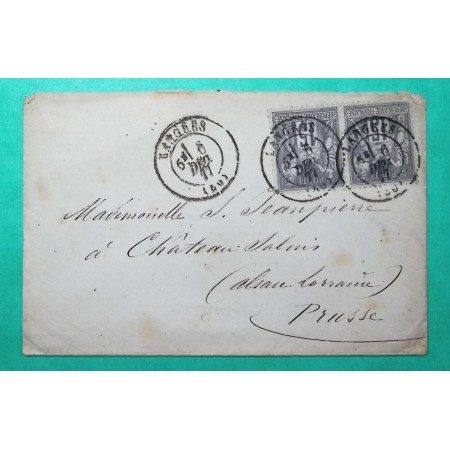 LANGRES
5E/ 6
DEC.
77
(50)
LANGRES
5E/ 6
DEC.
77
(50)
LANGRES
5E/ 6
DEC.
77
(50)
15
15
Mademoiselle S. Jeanpierre
à Château Salins
(alsace lorraine)
Prusse